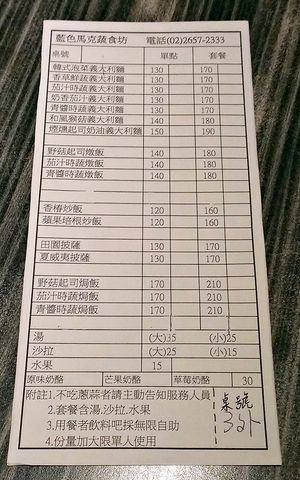 藍色馬克蔬食坊 電話(02)2657-2333
桌號 單點 套餐
韓式泡菜義大利麵 130 170
香草鮮蔬義大利麵 130 170
茄汁時蔬義大利麵 130 170
奶香茄汁義大利麵 130 170
青醬時蔬義大利麵 130 170
和風猴菇義大利麵 140 180
煙燻起司奶油義大利麵 150 190
野菇起司燉飯 140 180
茄汁時蔬燉飯 140 180
青醬時蔬燉飯 140 180
香椿炒飯 120 160
蘋果培根炒飯 120 160
田園披薩 130 170
夏威夷披薩 130 170
野菇起司焗飯 170 210
茄汁時蔬焗飯 170 210
青醬時蔬焗飯 170 210
湯 (大)35 (小)25
沙拉 (大)25 (小)15
水果 15
原味奶酪 芒果奶酪 草莓奶酪 30
附註1.不吃蔥蒜者請主動告知服務人員
2.套餐含湯.沙拉.水果
3.用餐者飲料吧採無限自助
4.份量加大限單人使用
桌號